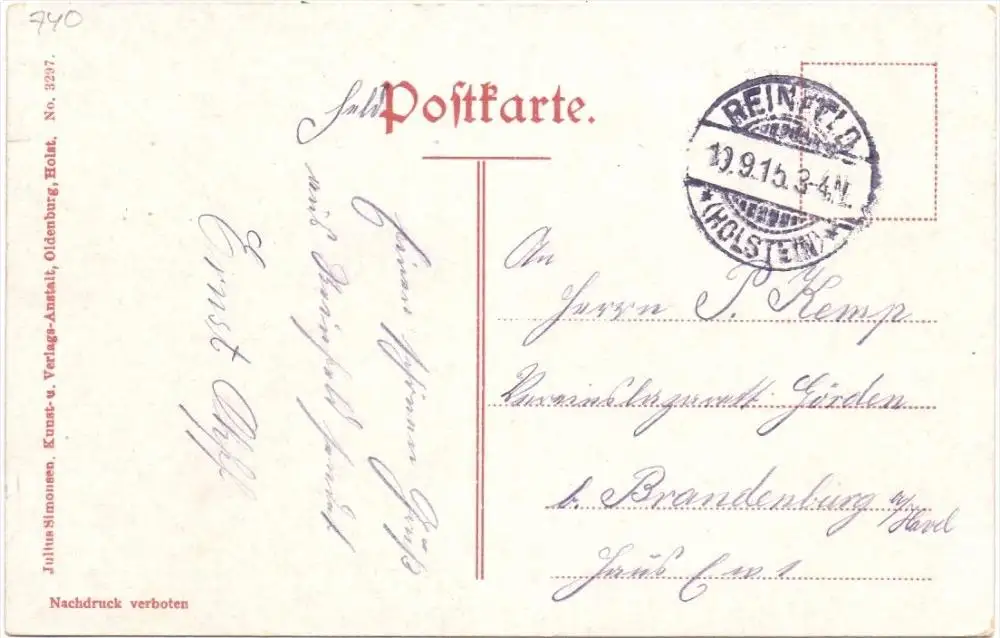 740
Feld Postkarte.
REINFELD
10.9.15.3-4N.
(HOLSTEIN)
An
Herrn P. Kemp
Vereinslazarett Görden
b. Brandenburg a/Havel
Haus C W 1
Einen schönen Gruß
aus Reinfeld sendet
Ernst
Julius Simonsen, Kunst- u. Verlags-Anstalt, Oldenburg, Holst. No. 3297.
Nachdruck verboten